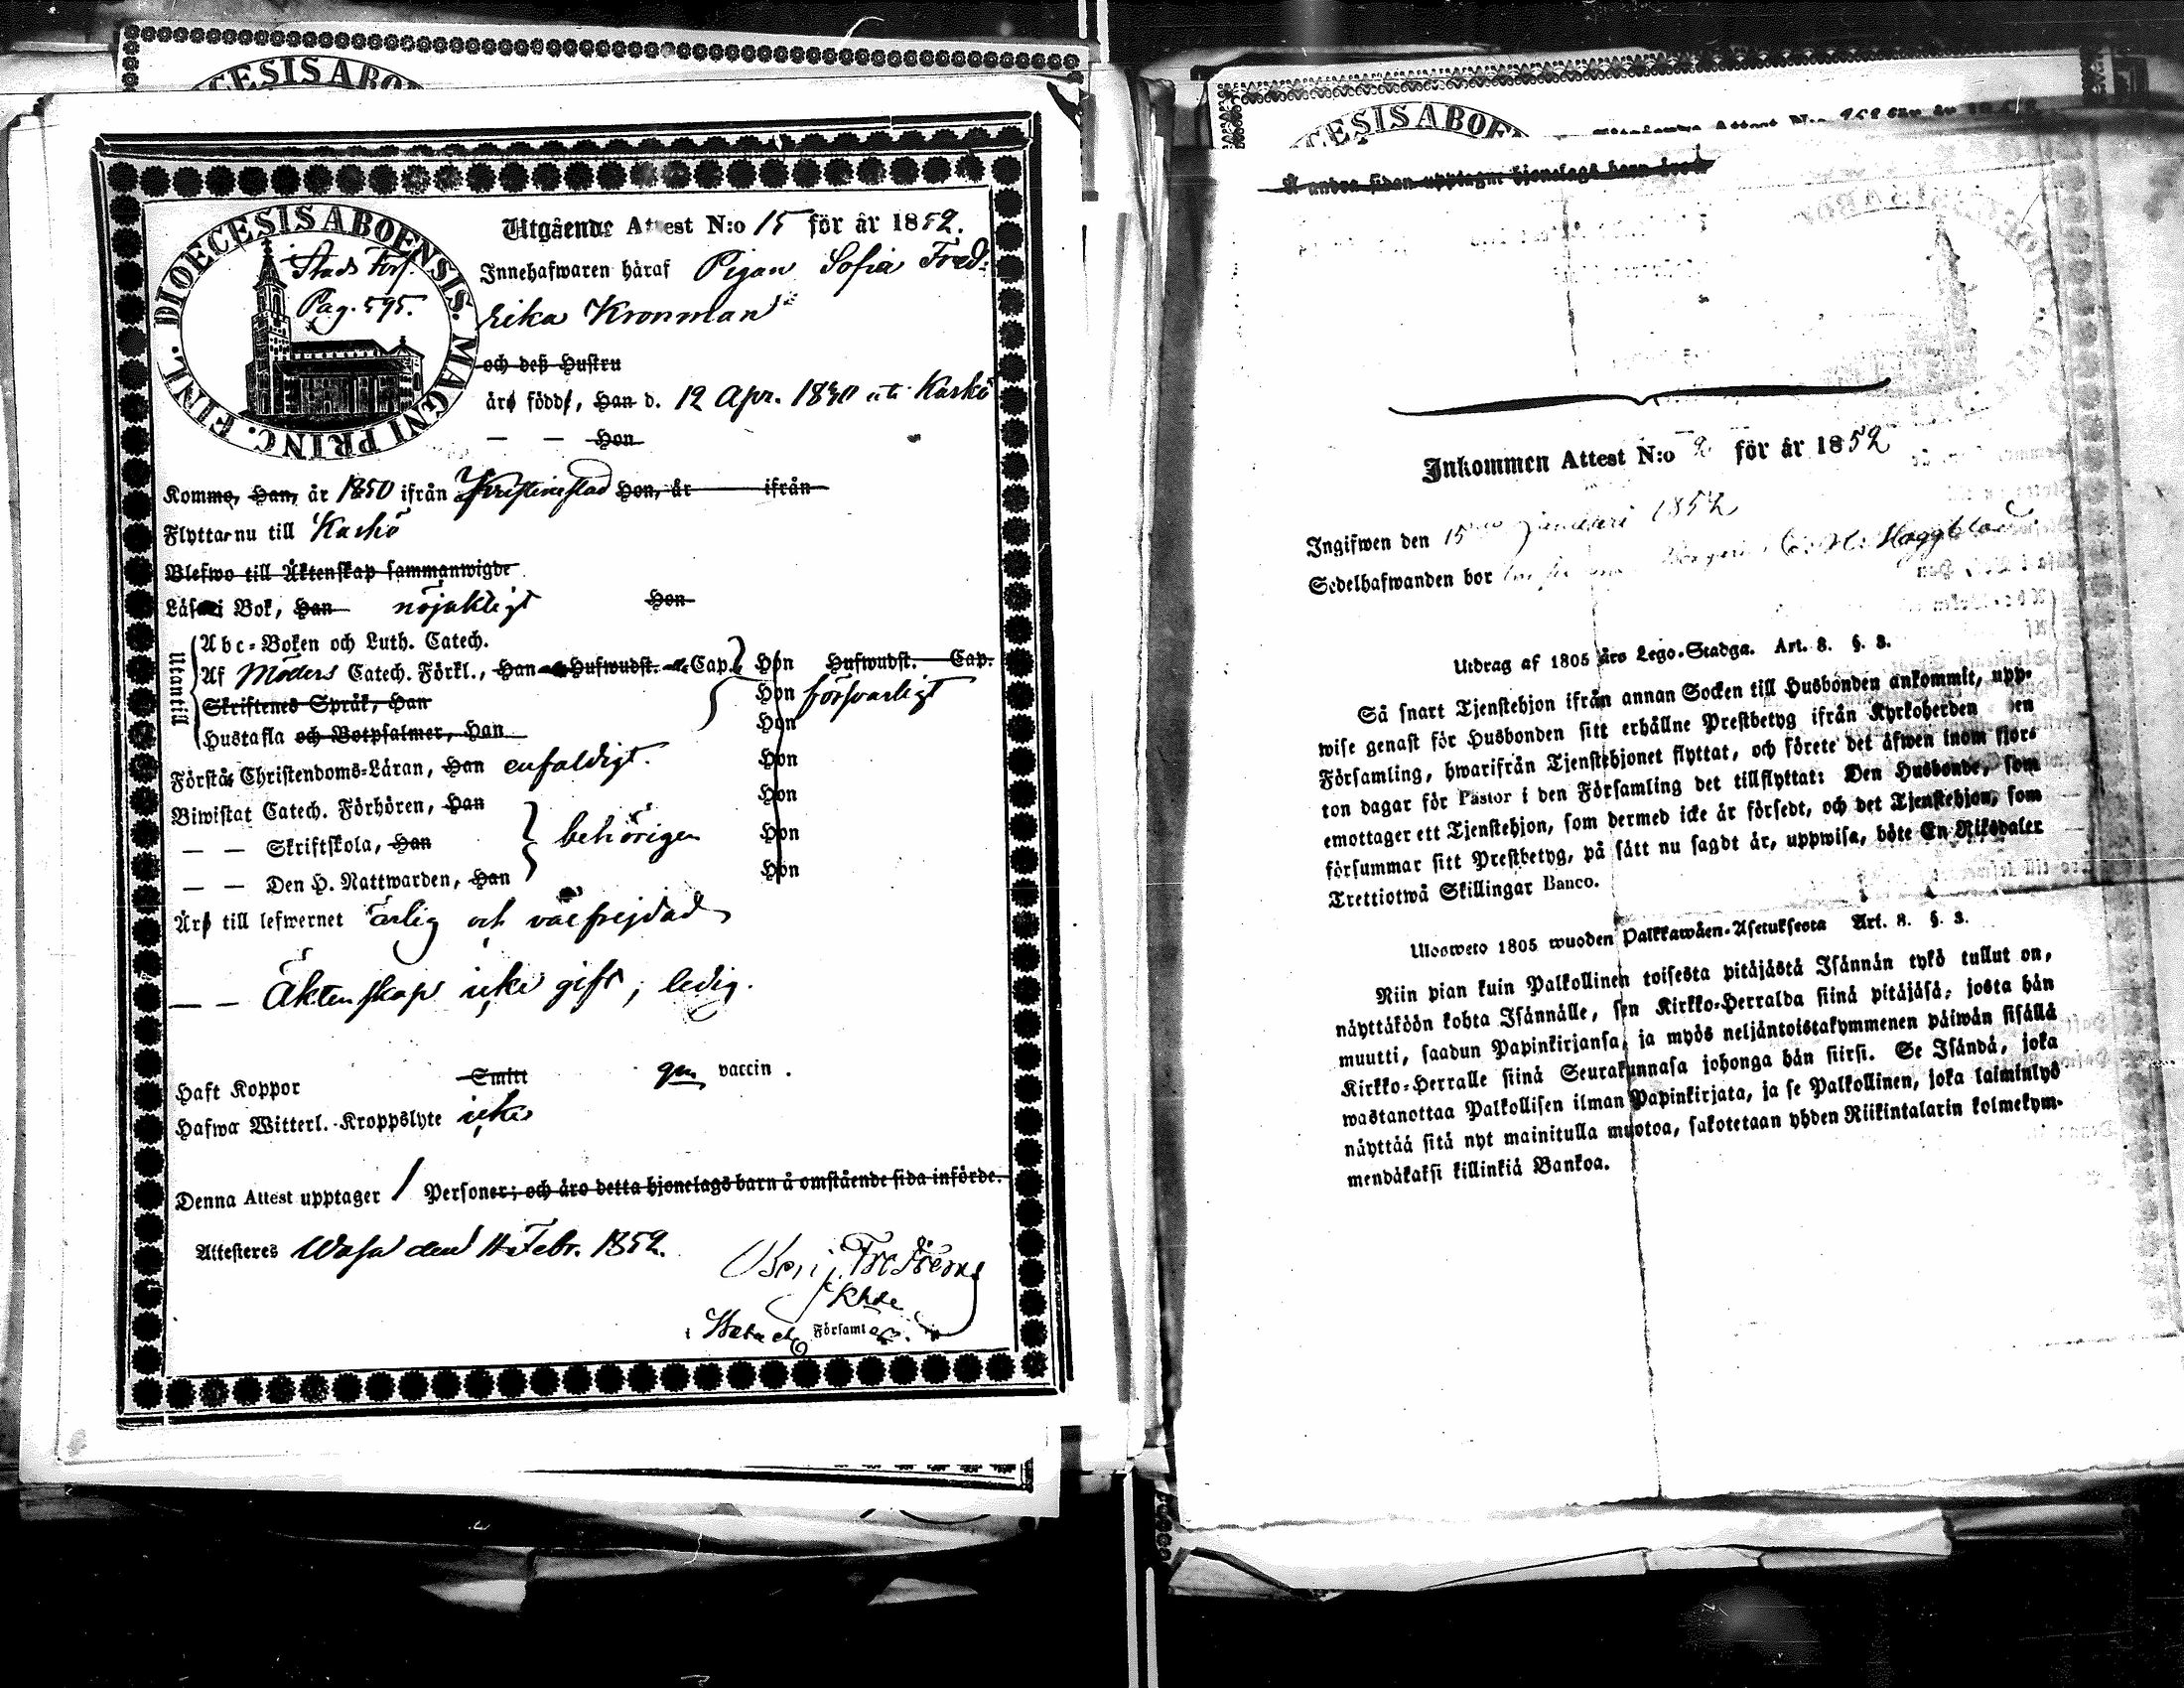 CESIS ABO
DIOECESIS ABOENSIS. MAGNI PRINC. FINL.
Stads Förs.
Pag. 595.
Utgående Attest N:o 15 för år 1852.
Innehafwaren häraf Pigan Sofia Fred-
rika Kronman
och deß Hustru
äro födde, Han d. 12 Apr. 1830 uti Kaskö
— — Hon
Komme, Han, år 1850 ifrån Kristinestad Hon, år ifrån
Flyttar nu till Kaskö
Blefwo till Äktenskap sammanwigde
Läser i Bok, Han nöjaktigt Hon
Utantill
Abc-Boken och Luth. Catech.
Af Möders Catech. Förkl., Han Hufwudst. Cap. Hon Hufwudst. Cap.
Skriftenes Språk, Han Hon försvarligt
Hustafla och Botpsalmer, Han Hon
Förstår Christendoms-Läran, Han enfaldigt. Hon
Biwistat Catech. Förhören, Han Hon
— — Skriftskola, Han behörigen Hon
— — Den H. Nattwarden, Han Hon
Äro till lefwernet ärlig och välfrejdad
— — Äktenskap icke gift; ledig.
Haft Koppor Smitt gm vaccin.
Hafwa Witterl. Kroppslyte icke
Denna Attest upptager 1 Personer; och äro detta hjonelags barn å omstående sida införde.
Attesteres Wasa den 11 Febr. 1852.
Benj.
Khde
i Församl.
CESIS ABOE
Attest N:o
Å andra sidan upptagne hjonelags barn äro
Inkommen Attest N:o 2 för år 1852
Ingifwen den 15 januari 1852
Sedelhafwanden bor Häggblad
Utdrag af 1805 års Lego-Stadga. Art. 8. §. 3.
Så snart Tjenstehjon ifrån annan Socken till Husbonden ankommit, upp-
wise genast för Husbonden sitt erhållne Prestbetyg ifrån Kyrkoherden den
Församling, hwarifrån Tjenstehjonet flyttat, och förete det äfwen inom fjor-
ton dagar för Pastor i den Församling det tillflyttat: Den Husbonde, som
emottager ett Tjenstehjon, som dermed icke är försedt, och det Tjenstehjon, som
försummar sitt Prestbetyg, på sätt nu sagdt är, uppwisa, böte En Riksdaler
Trettiotwå Skillingar Banco.
Ulosweto 1805 wuoden Palkkawäen-Asetuksesta Art. 8. §. 3.
Niin pian kuin Palkollinen toisesta pitäjästä Isännän tykö tullut on,
näyttäköön kohta Isännälle, sen Kirkko-Herralda siinä pitäjäsä, josta hän
muutti, saadun Papinkirjansa, ja myös neljäntoistakymmenen päiwän sisällä
Kirkko-Herralle siinä Seurakunnasa johonga hän siirsi. Se Isändä, joka
wastanottaa Palkollisen ilman Papinkirjata, ja se Palkollinen, joka laiminlyö
näyttää sitä nyt mainitulla muotoa, sakotetaan yhden Riikintalarin kolmekym-
mendäkaksi killinkiä Bankoa.